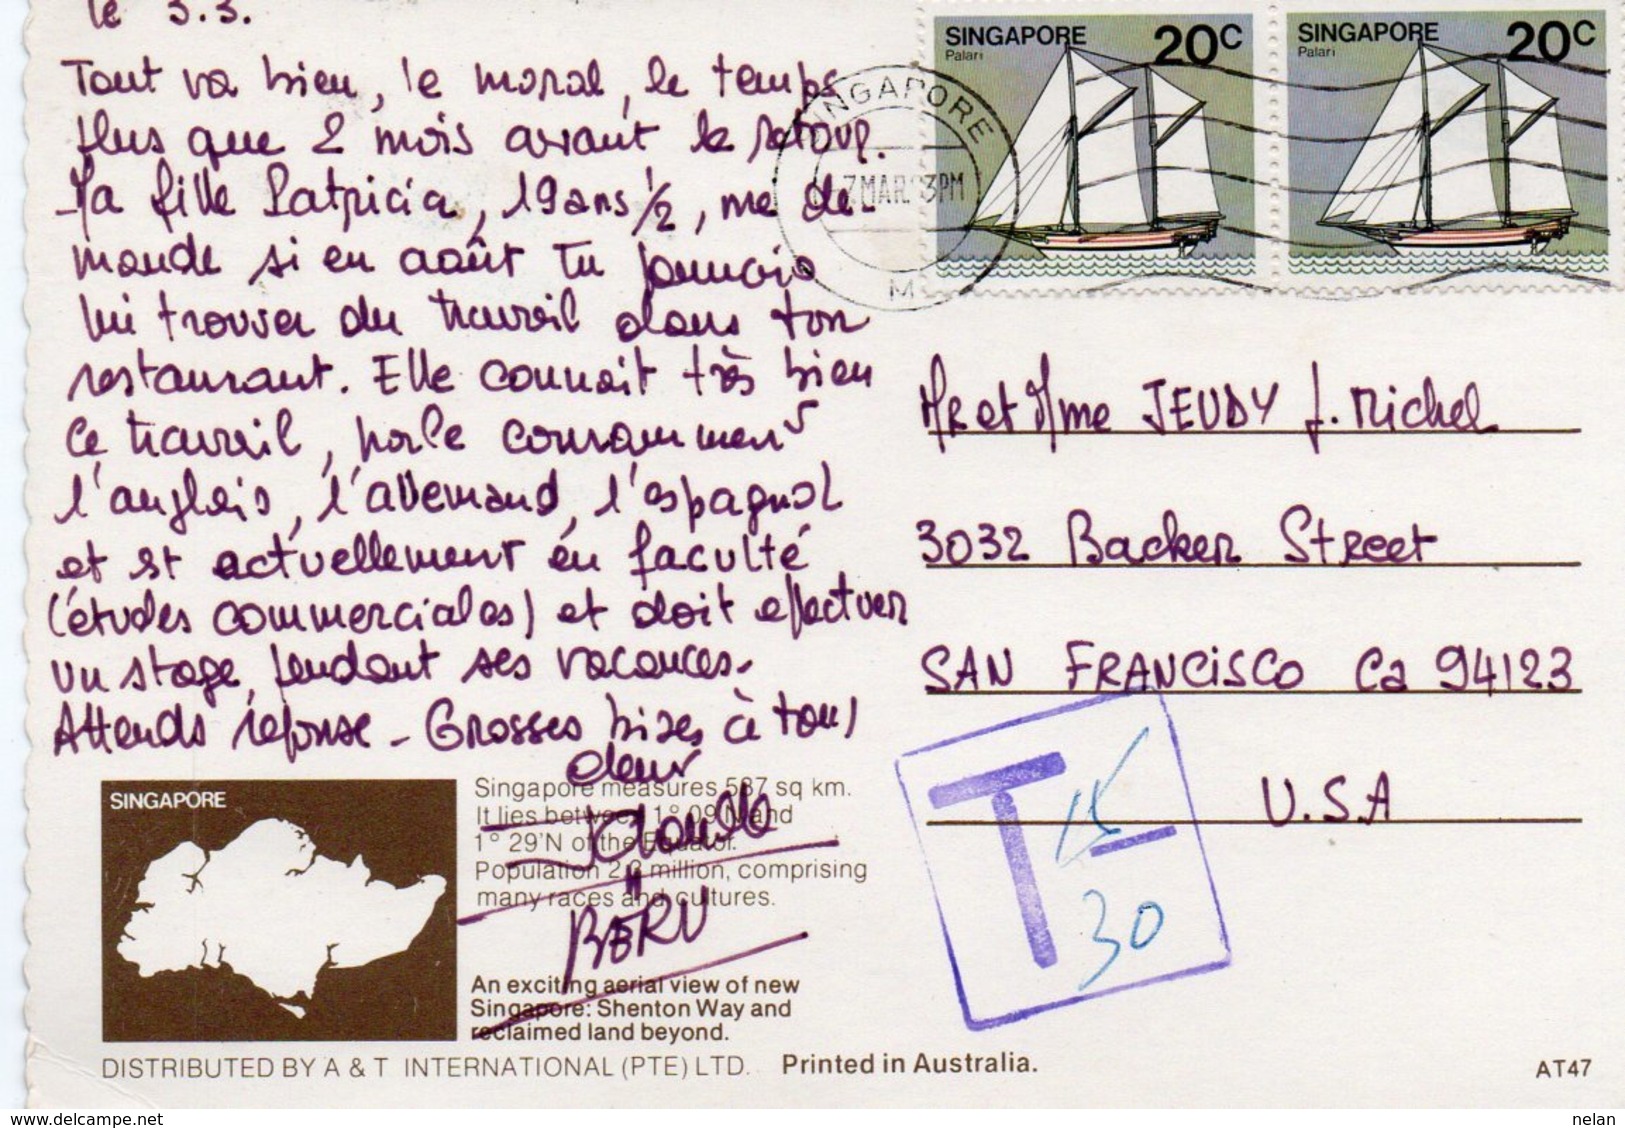 le 3.3.
Tout va bien, le moral, le temps
plus que 2 mois avant le retour.
Ma fille Patricia, 19 ans 1/2, me de-
mande si en août tu pourrais
lui trouver du travail dans ton
restaurant. Elle connait très bien
ce travail, parle couramment
l'anglais, l'allemand, l'espagnol
et est actuellement en faculté
(études commerciales) et doit effectuer
un stage pendant ses vacances.
Attends réponse - Grosses bises à tous
deux
SINGAPORE 20C
Palari
SINGAPORE 20C
Palari
SINGAPORE
7 MAR 3PM
M
Mr et Mme JEUDY J. Michel
3032 Backer Street
SAN FRANCISCO Ca 94123
U.S.A
T 15
30
SINGAPORE
Singapore measures 587 sq km.
It lies between 1° 09'N and
1° 29'N of the Equator.
Population 2.3 million, comprising
many races and cultures.
BERU
An exciting aerial view of new
Singapore: Shenton Way and
reclaimed land beyond.
DISTRIBUTED BY A & T INTERNATIONAL (PTE) LTD. Printed in Australia.
AT47
www.delcampe.net
nelan